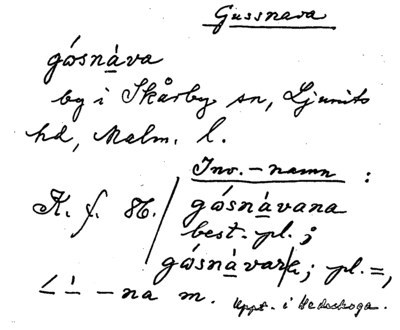 Gussnava
gósnàva
by i Skårby sn, Ljunits
hd, Malm. l.
Inv.-namn :
K. f. 86. / gósnàvana
best. pl.;
gósnàvara; pl. =,
-na m. Uppt. i